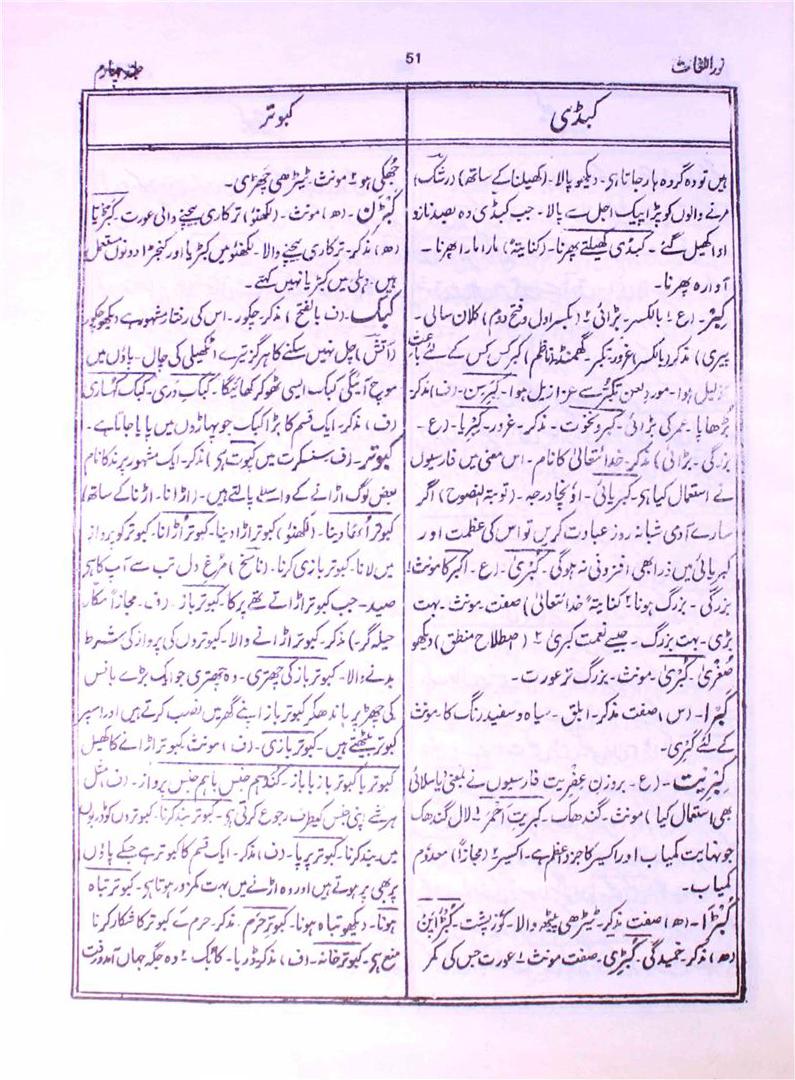 نور اللغات
51
جلد چہارم
کبڈی
ہیں تو وہ گروہ ہار جاتا ہی۔ دیکھو پالا۔ (کھیلنا کے ساتھ) (رشک)
مرنے والوں کو پڑا پیک اجل سے پالا۔ جب کبڈی وہ بصد ناز و
ادا کھیل گئے۔ کبڈی کھیلتے پھرنا۔ (کنایۃً) مارا مارا پھرنا۔
آوارہ پھرنا۔
کِبر۔ (ع۔ بالکسر۔ بڑائی۔ بکسر اول و فتح دوم) کلان سالی۔
پیری) مذکر (بالکسر) غرور۔ تکبر۔ گھمنڈ (ناظم) کبر کس کس کے لئے باعث
تذلیل ہوا۔ مورد لعن تکبر سے عزازیل ہوا۔ کبرِ سن۔ (ف) مذکر
بڑھاپا۔ عمر کی بڑائی۔ کبر و نخوت۔ مذکر۔ غرور۔ کبریا۔ (ع۔
بزرگی۔ بڑائی) مذکر۔ خدا تعالیٰ کا نام۔ اس معنی میں فارسیوں
نے استعمال کیا ہی۔ کبریائی۔ اونچا درجہ۔ (توبۃ النصوح) اگر
سارے آدمی شبانہ روز عبادت کریں تو اس کی عظمت اور
کبریائی میں ذرا بھی افزونی نہ ہوگی۔ کُبریٰ۔ (ع۔ اکبر کا مونث
بزرگی۔ بزرگ ہونا۔ کنایتہً خدا تعالیٰ) صفت مونث۔ بہت
بڑی۔ بہت بزرگ۔ جیسے نعمت کبریٰ۔ (اصطلاح منطق) دیکھو
صُغریٰ۔ کُبریٰ۔ مونث۔ بزرگ تر عورت۔
کَبرا۔ (س) صفت مذکر۔ ابلق۔ سیاہ و سفید رنگ کا۔ مونث
کے لئے کبری۔
کِبریت۔ (ع۔ بروزن عِفریت فارسیوں نے بمعنی دیا سلائی
بھی استعمال کیا) مونث۔ گندھک۔ کبریتِ احمر۔ لال گندھک
جو نہایت کمیاب اور اکسیر کا جزو اعظم ہے۔ اکسیر۔ (مجازاً) معدوم
کمیاب۔
کُبڑا۔ (ھ) صفت مذکر۔ ٹیڑھی پیٹھ والا۔ کوزپشت۔ کُبڑاپن
(ھ) مذکر۔ خمیدگی۔ کُبڑی۔ صفت مونث۔ عورت جس کی کمر
کبوتر
جھکی ہو۔ مونث۔ ٹیڑھی چھڑی۔
کبڑن۔ (ھ) مونث۔ (لکھنؤ) ترکاری بیچنے والی عورت۔ کبڑیا
(ھ) مذکر۔ ترکاری بیچنے والا۔ لکھنؤ میں کبڑیا اور کنجڑا دونوں مستعمل
ہیں۔ دہلی میں کبڑیا نہیں کہتے۔
کبک۔ (ف۔ بالفتح) مذکر۔ چکور۔ اس کی رفتار مشہور ہے دیکھو چکور
(آتش) چل نہیں سکنے کا ہرگز تیرے اٹھکیلی کی چال۔ پاؤں میں
موچ آئیگی کبک ایسی ٹھوکر کھائیگا۔ کبک دری۔ کبک کہساری
(ف) مذکر۔ ایک قسم کا بڑا کبک جو پہاڑوں میں پایا جاتا ہے۔
کبوتر۔ (ف۔ سنسکرت میں کپوت ہی) مذکر۔ ایک مشہور پرند کا نام
بعض لوگ اڑانے کے واسطے پالتے ہیں۔ (اڑانا۔ اڑنا کے ساتھ)
کبوتر دینا۔ (لکھنؤ) کبوتر اڑا دینا۔ کبوتر اُڑانا۔ کبوتر کو پرواز
میں لانا۔ کبوتر بازی کرنا۔ (ناسخ) مرغ دل تب سے آپ کا ہی
صید۔ جب کبوتر اڑاتے تھے پر کا۔ کبوتر باز۔ (ف۔ مجازاً مکار
حیلہ گر) مذکر۔ کبوتر اڑانے والا۔ کبوتروں کی پرواز کی شرط
بدنے والا۔ کبوتر باز کی چھتری۔ وہ چھتری جو ایک بڑے بانس
کی چھڑ پر باندھکر کبوتر باز اپنے گھر میں نصب کرتے ہیں اور اسپر
کبوتر بیٹھتے ہیں۔ کبوتر بازی۔ (ف) مونث کبوتر اڑانے کا کھیل
کبوتر با کبوتر باز با باز۔ کند ہم جنس با ہم جنس پرواز۔ (ف) مثل
ہر شے اپنی جنس کیطرف رجوع کرتی ہی۔ کبوتر بند کرنا۔ کبوتروں کو ڈربوں
میں بند کرنا۔ کبوتر پرپا۔ (ف) مذکر۔ ایک قسم کا کبوتر ہے جسکے پاؤں
پر بھی پر ہوتے ہیں اور وہ اڑنے میں بہت کمزور ہوتا ہی۔ کبوتر تباہ
ہونا۔ دیکھو تباہ ہونا۔ کبوتر حرم۔ مذکر۔ حرم کے کبوتر کا شکار کرنا
منع ہی۔ کبوتر خانہ۔ (ف) مذکر ڈربا۔ کابک۔ وہ جگہ جہاں آمدورفت